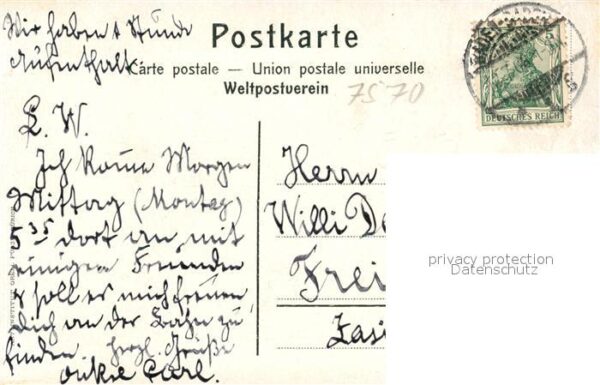 Wir haben 1 Stunde
Aufenthalt.
Postkarte
Carte postale — Union postale universelle
Weltpostverein
7570
BADEN-BADEN
5
DEUTSCHES REICH
L. W.
Ich komme Morgen
Mittag (Montag)
5 35 dort an mit
einigen Freunden
& soll es mich freuen
Dich an der Bahn zu
finden. Herzl. Grüße
Onkel Carl.
Herrn
Willi
Frei
privacy protection
Datenschutz